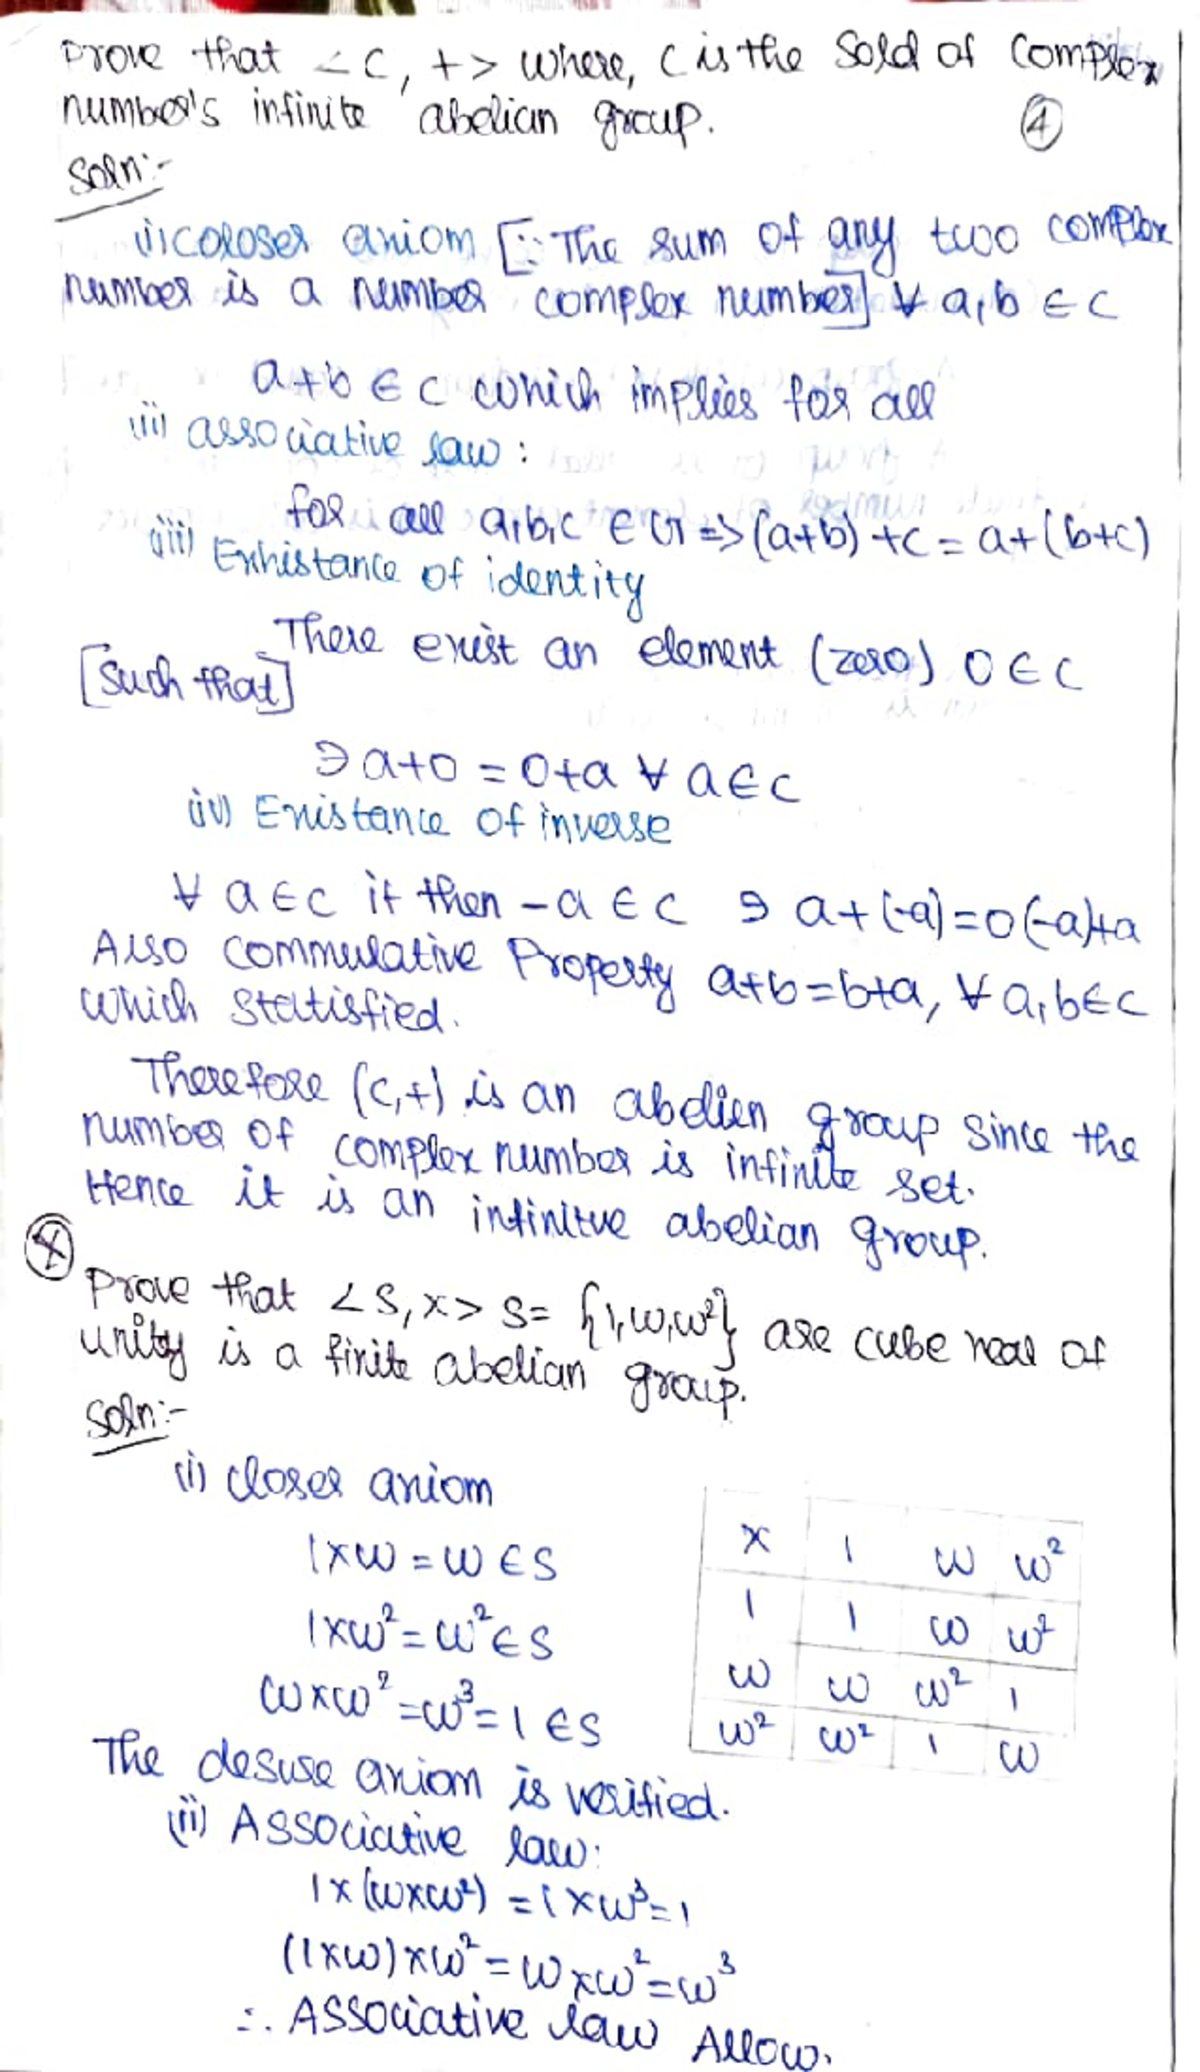 Prove that <C, +> where, C is the Sold of Complex
number's infinite abelian group.
4
Soln:-
(i) coloser aniom [∵ The sum of any two complex
number is a number complex number] ∀ a,b ∈ C
a+b ∈ C which implies for all
(ii) associative law:
for all a,b,c ∈ G => (a+b)+c = a+(b+c)
(iii) Exhistance of identity
There exist an element (zero) 0 ∈ C
[Such that]
∋ a+0 = 0+a ∀ a ∈ C
(iv) Enistance of inverse
∀ a ∈ C it then -a ∈ C ∋ a+(-a)=0(-a)+a
Also Commulative Property a+b=b+a, ∀ a,b∈C
which Statisfied.
Therefore (C,+) is an abelien group since the
number of complex number is infinite set.
Hence it is an infinitve abelian group.
Prove that <S,x> S= {1,ω,ω²} are cube real of
unity is a finite abelian group.
Soln:-
(i) closer aniom
1×ω = ω ∈ S
1×ω² = ω² ∈ S
ω×ω² = ω³ = 1 ∈ S
× 1 ω ω²
1 1 ω ω²
ω ω ω² 1
ω² ω² 1 ω
The desuse aniom is verified.
(ii) Associative law:
1×(ω×ω²) = 1×ω³=1
(1×ω)×ω² = ω×ω²=ω³
∴ Associative law Allow.